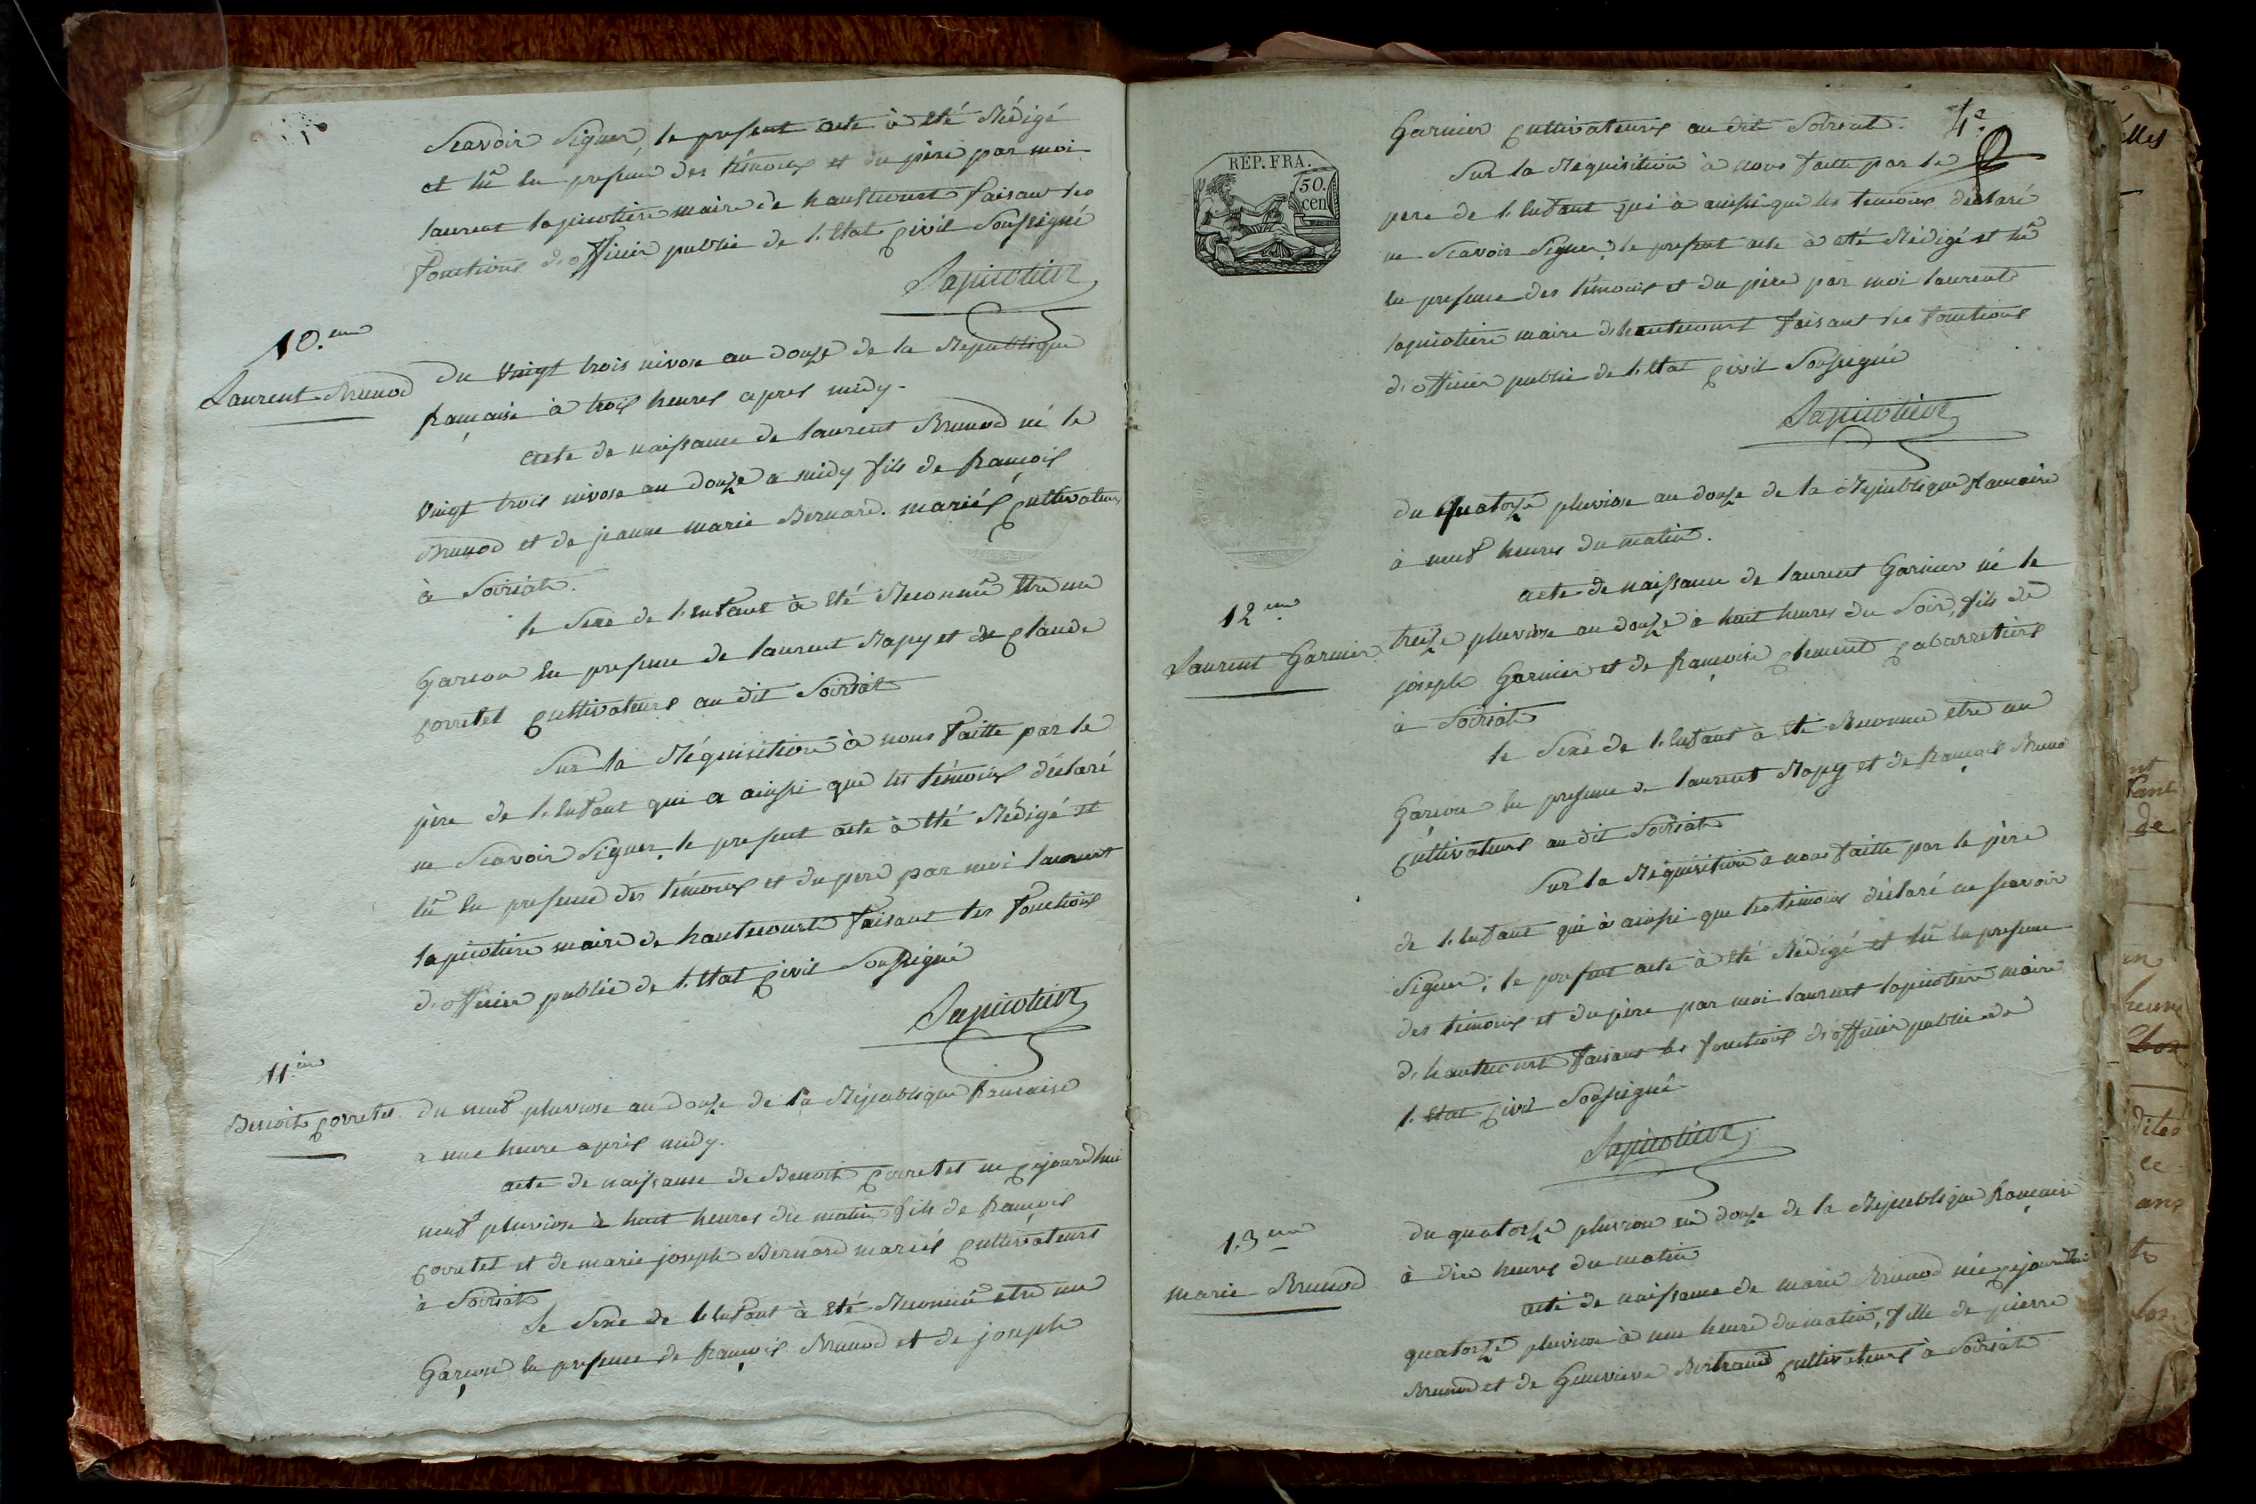 Scavoir Signer, le present acte à eté Rédigé
et lû en presence des témoins et du père par moi
laurent lapicotiere maire de hautecourt faisant les
fonctions d'officier public de l'Etat Civil Soussigné
Lapicotiere
10.eme
Laurent Brunod
Du Vingt trois nivose an douze de la Republique
française à trois heures apres midy.
acte de naissance de laurent Brunod né le
Vingt trois nivose an douze a midy fils de françois
Brunod et de jeanne marie Bernard. mariés Cultivateurs
à Soiriat.
le Sexe de l'enfant à eté Reconnû Etre un
Garcon en presence de laurent Rapy et de Claude
Corretel Cultivateurs au dit Soiriat
Sur la Réquisition à nous faitte par le
père de l'enfant qui a ainssi que les témoins déclaré
ne Scavoir Signer, le present acte à eté Rédigé et
lû en presence des témoins et du pere par moi laurent
lapicotiere maire de hautecourt faisant les fonctions
d'officier public de l'Etat Civil Soussigné
Lapicotiere
11.eme
Benoit Corretel
du neuf pluviose an douze de la République francaise
a une heure après midy.
acte de naissance de Benoit Corretel né Cejourd'hui
neuf pluviose à huit heures du matin fils de françois
Corretel et de marie joseph Bernard mariés Cultivateurs
à Soiriat
le Sexe de l'enfant à eté Reconnû etre un
Garçon en presence de françois Brunod et de joseph
4e.
Garnier Cultivateurs au dit Soiriat.
REP. FRA.
50.
cen
Sur la Réquisition à nous faitte par le
pere de l'enfant qui à ainssi que les temoins déclaré
ne Scavoir Signer, le present acte à eté Rédigé et lû
en presence des témoins et du père par moi laurent
lapicotiere maire d'hautecourt faisant les fonctions
d'officier public de l'Etat Civil Soussigné
Lapicotiere
du quatorze pluviose an douze de la Republique francaise
à neuf heures du matin.
12.eme
Laurent Garnier
acte de naissance de laurent Garnier né le
treize pluviose an douze à huit heures du Soir, fils de
joseph Garnier et de françoise Clement Cabarretiers
à Soiriat
le Sexe de l'enfant à eté Reconnu etre un
Garçon en presence de laurent Rapy et de françois Brunod
Cultivateurs au dit Soiriat
Sur la Réquisition à nous faitte par le père
de l'enfant qui à ainssi que les témoins déclaré ne scavoir
Signer, le present acte à eté Rédigé et lû en presence
des témoins et du père par moi laurent lapicotiere maire
d'hautecourt faisant les fonctions d'officier public de
l'Etat Civil Soussigné
Lapicotiere
13.eme
marie Brunod
du quatorze pluviose an douze de la République française
à dix heures du matin
acte de naissance de marie Brunod née Cejourd'hui
quatorze pluviose à une heure du matin, fille de pierre
Brunod et de Genevieve Bertrand Cultivateurs à Soiriat